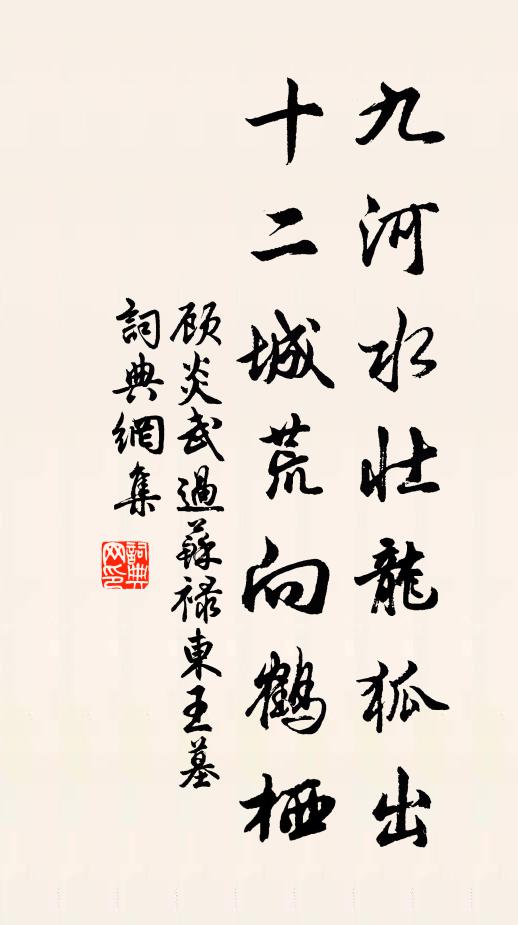 九河水壮龍狐出
十二城荒向鶴栖
顾炎武過蘇禄東王墓
詞典網集
詞典網印